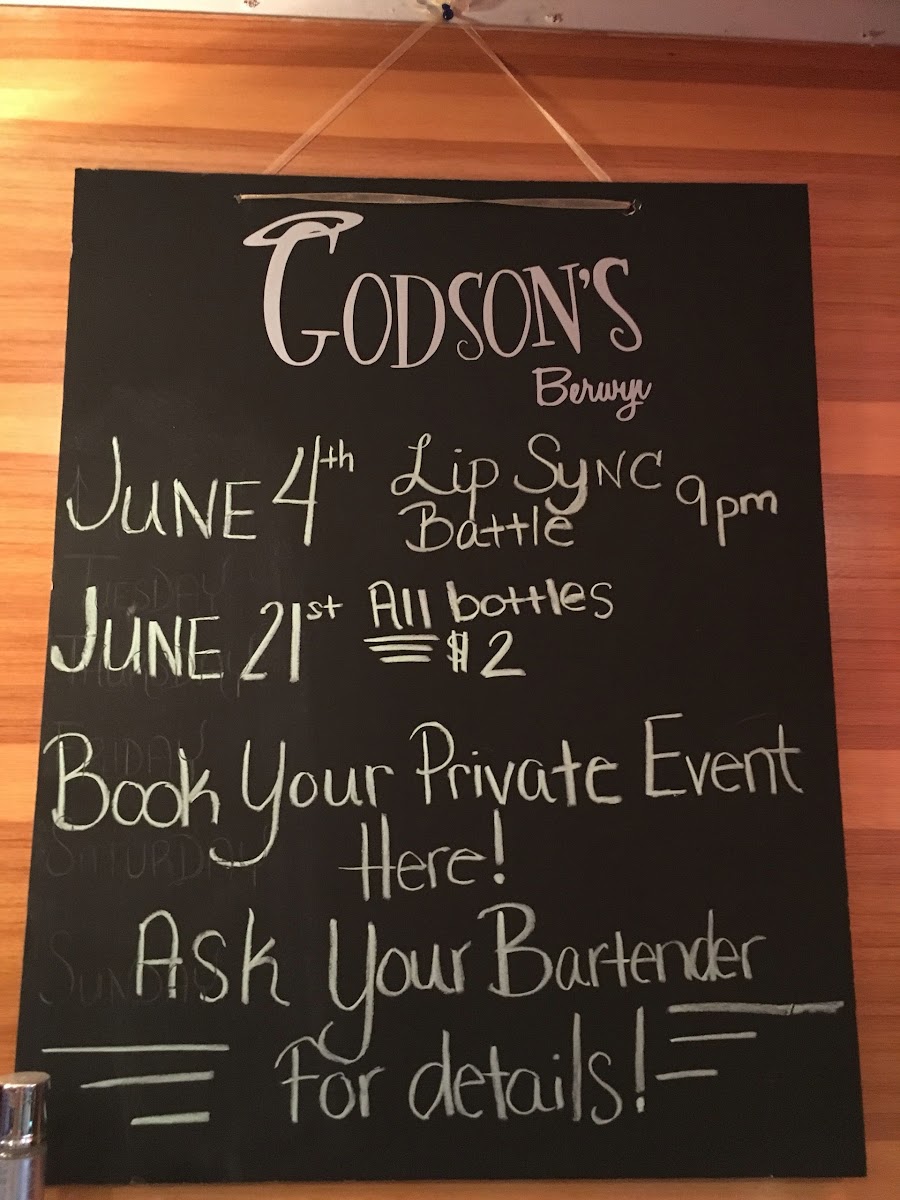 GODSON'S
Berwyn
JUNE 4th Lip SyNC 9pm
Battle
TUESDAY
JUNE 21st All bottles
$2
THURSDAY
FRIDAY
Book Your Private Event
SATURDAY
Here!
Ask Your Bartender
SUNDAY
For details!